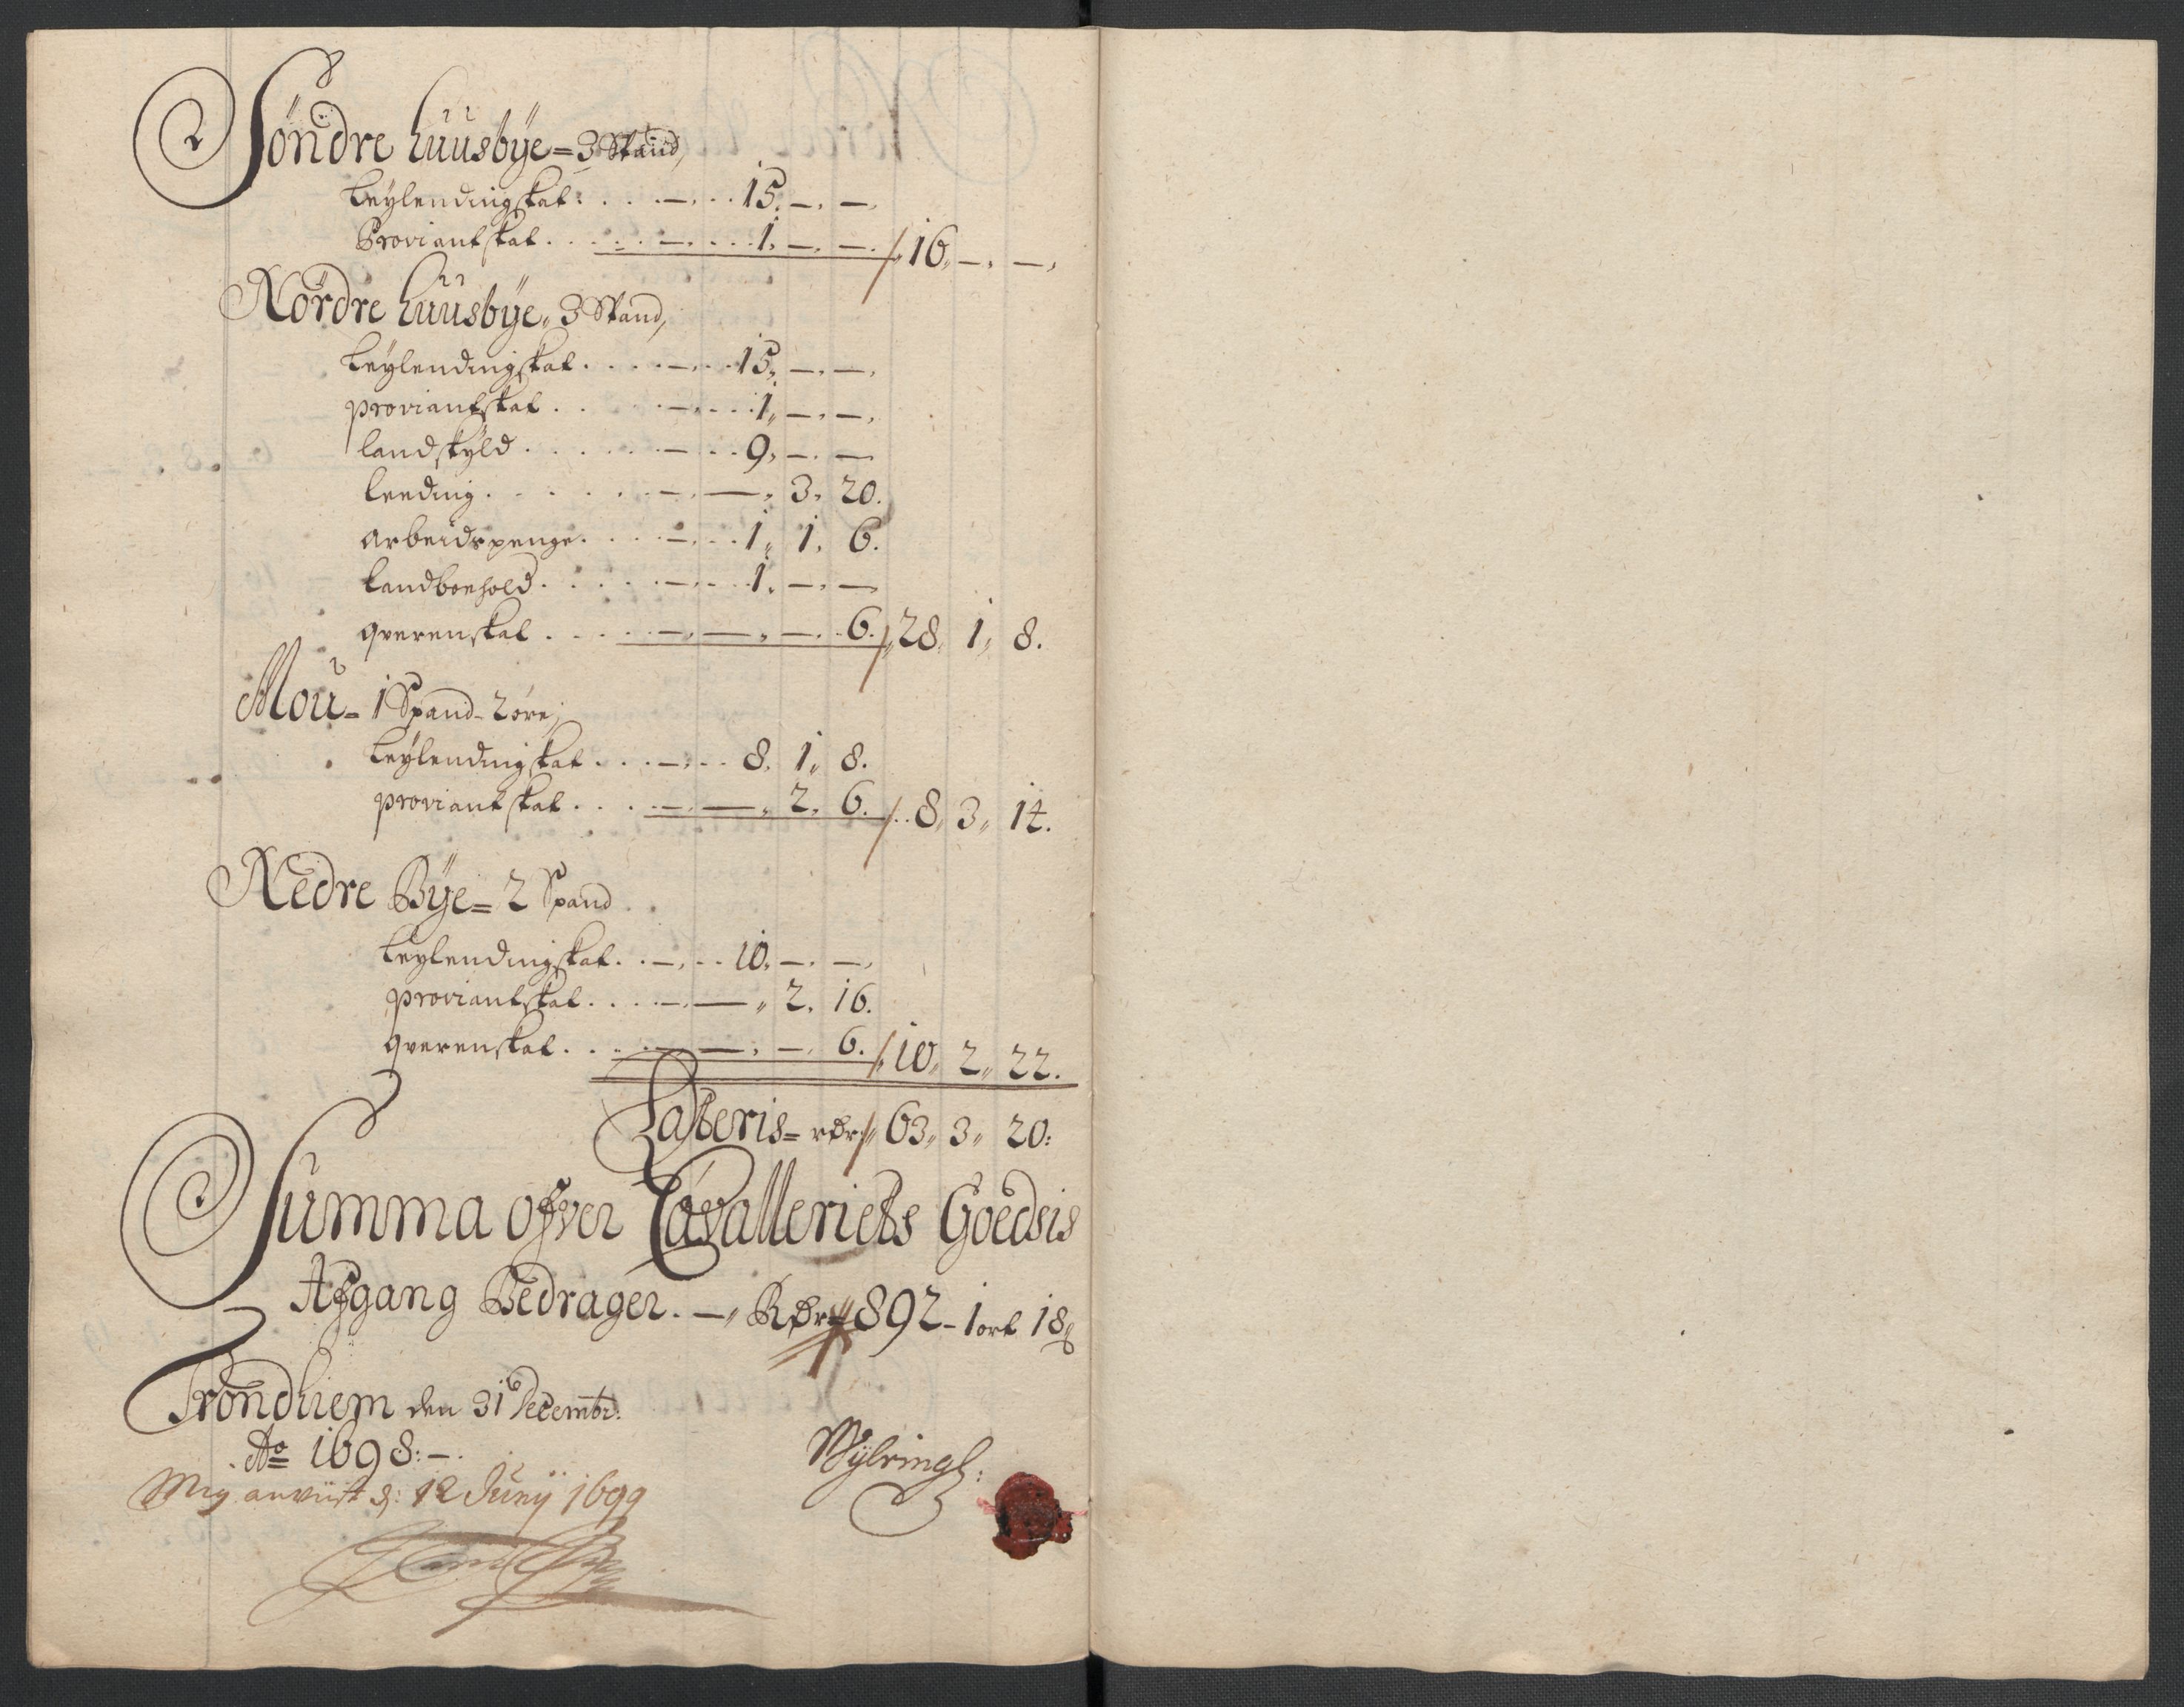 Söndre huusbÿe = 3 Spand,
Leÿlendingskat: . . . — . . 15. —. —.
Proviantskat . . . . . — . . . 1. —. —. / 16. —. —.
Nordre huusbÿe, 3 Spand,
Leÿlendingskat . . . . — . . 15, —. —.
proviantskat . . . — . . . 1, —. —.
landskÿld . . . . . — . . 9, —. —
Leeding . . . . . . —. —, 3, 20.
arbeidspenge . . . . — . . 1, 1, 6.
Landboehold . . . . . — . . 1. —. —
qverenskat . . . . —. —, —. . 6. / 28, 1, 8.
Mou = 1 Spand - 2 öre;
Leÿlendingskat . . . — . . 8. 1, 8.
proviantskat . . . . — —, 2, 6. / . . 8, 3, 14.
Nedre Bÿe = 2 Spand . .
Leÿlendingskat . . —, . . 10, —. —.
proviantskat . . . . — — „ 2. 16.
qverenskat . . . — —, —, 6. / 10, 2, 22.
Lateris = rdr / 63, 3, 20:
Summa ofver Cavalleriets Goedsis
Afgang Bedrager. — „ Rdr 892 - 1 ort 18 s
Trondhiem den 31 Decembr:
Ao 1698: —.
Mig anviist d: 12 Junÿ 1699